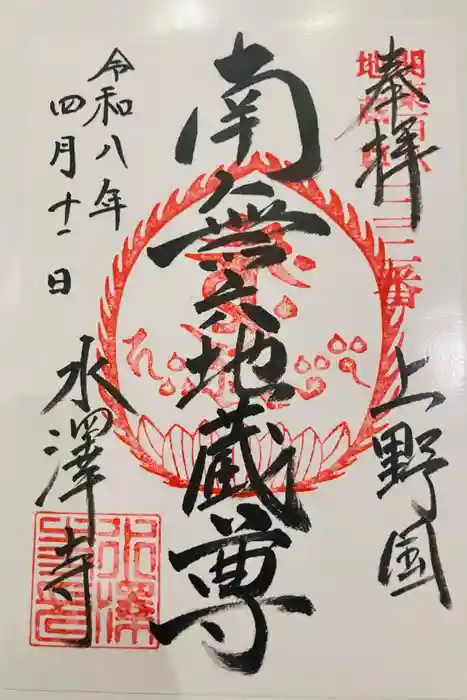 奉拝
上野国
南無六地蔵尊
令和八年
四月十一日
水澤寺